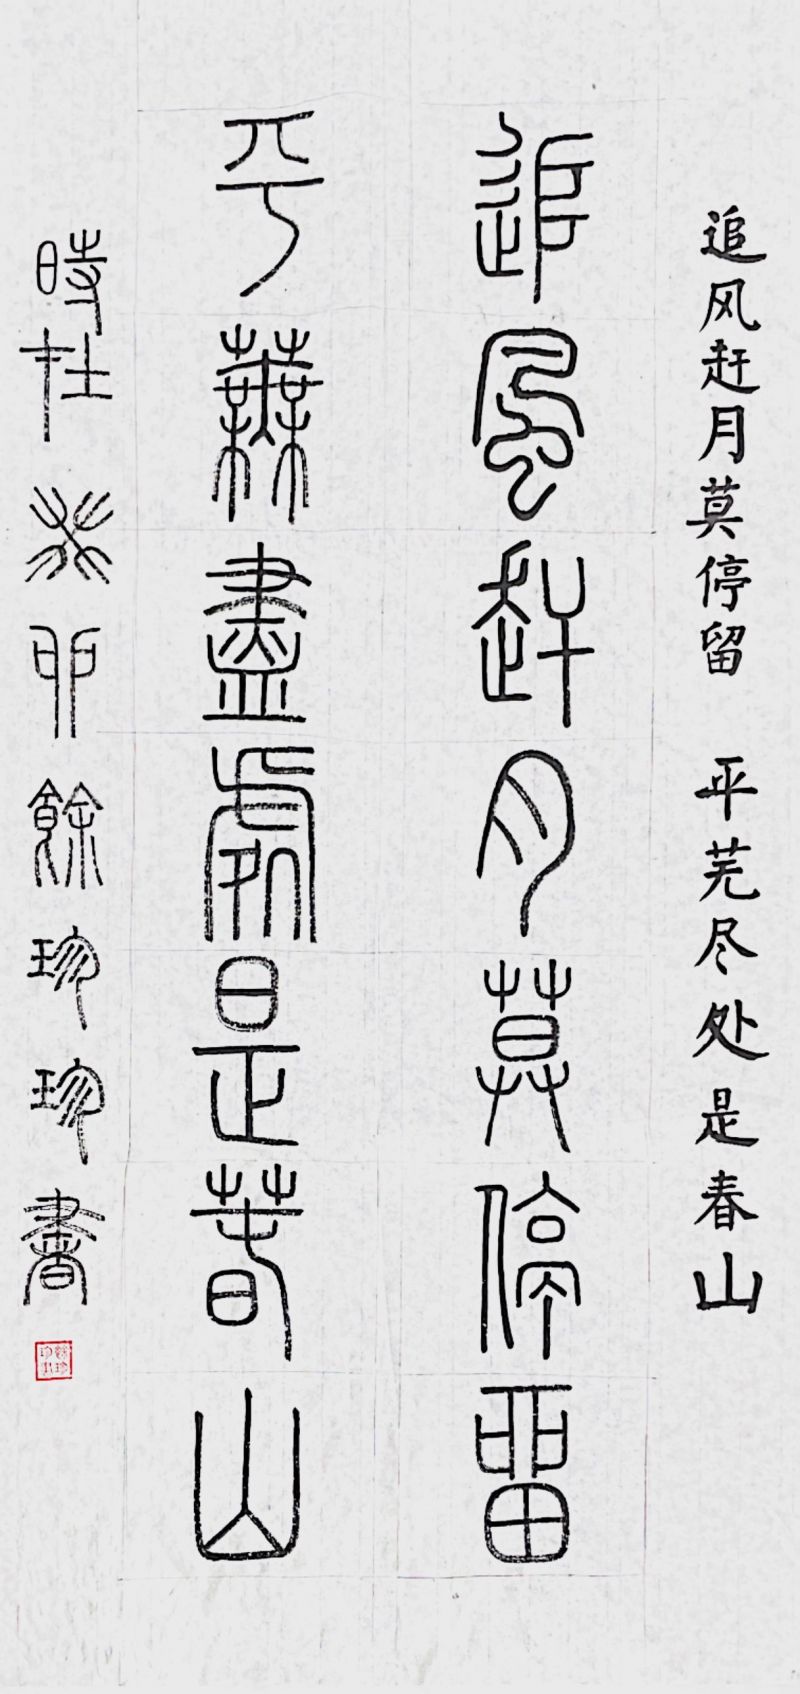 追风赶月莫停留 平芜尽处是春山
追風赶月莫停留
平蕪盡處是春山
時在癸卯餘珍珍書